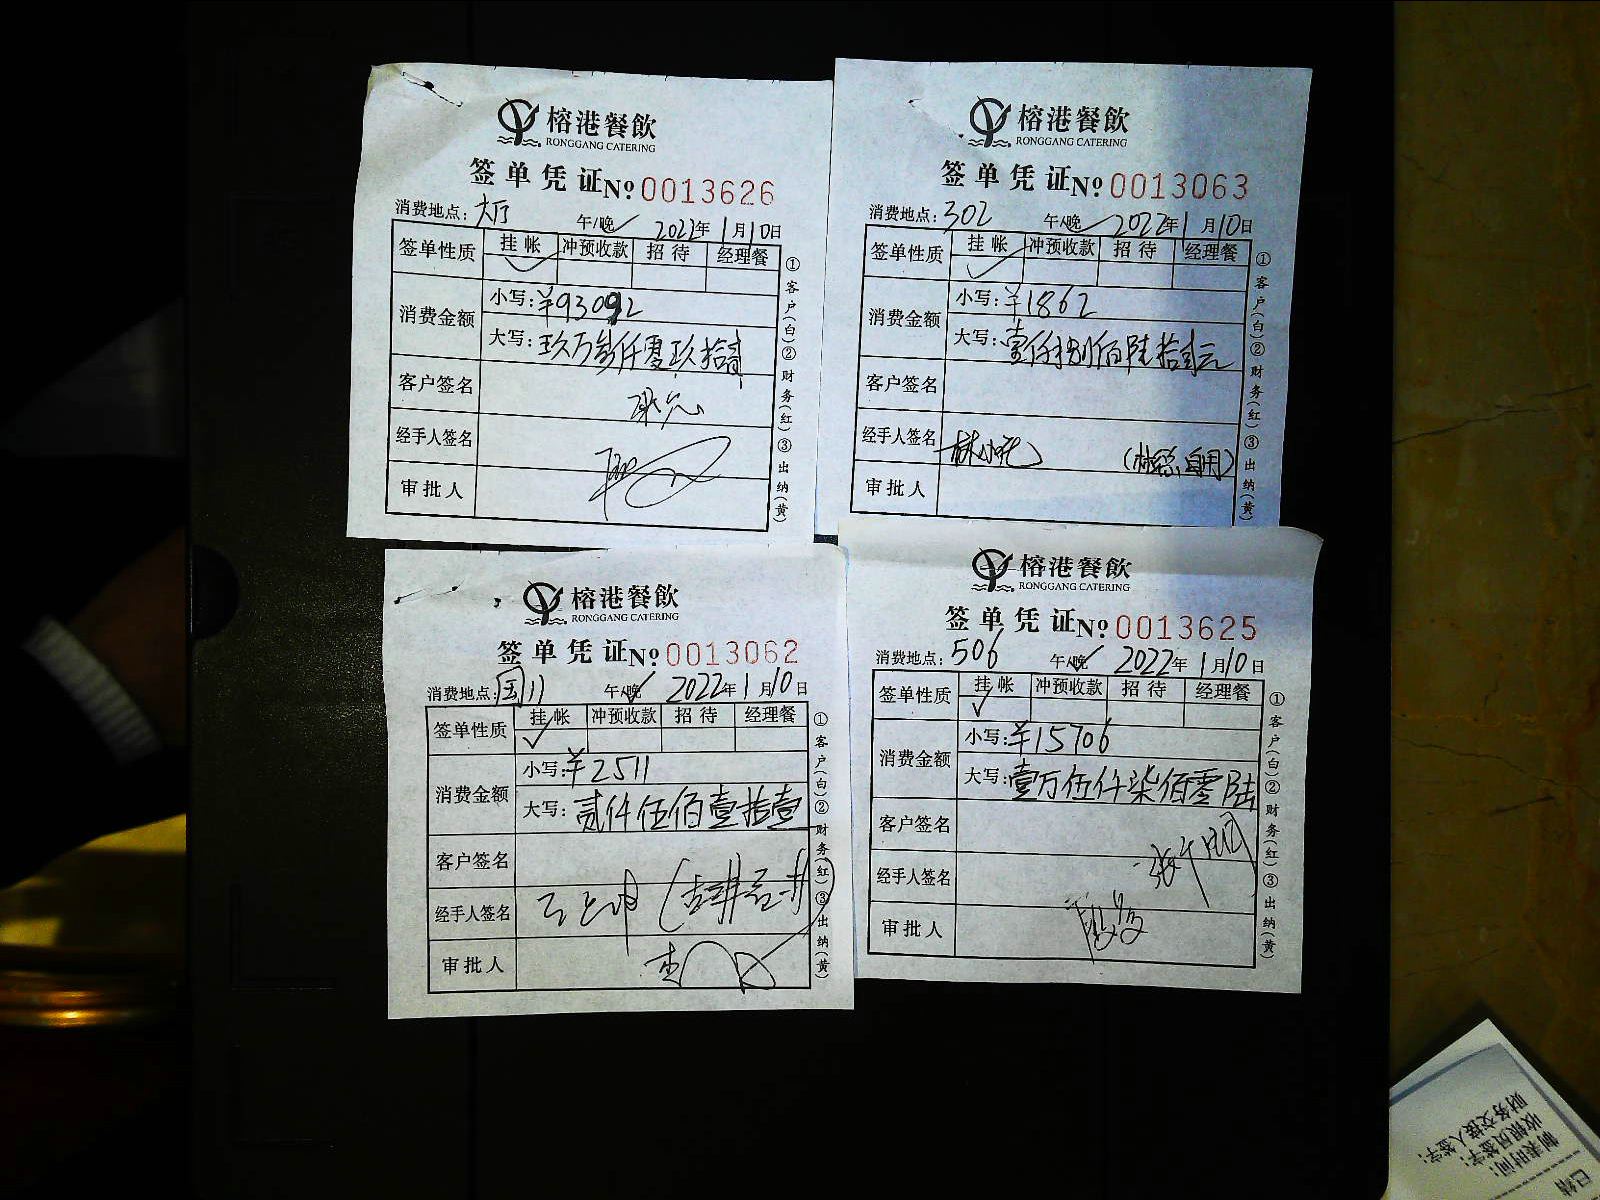 榕港餐飲
RONGGANG CATERING
签单凭证 No 0013626
消费地点: 大厅 午/晚 2022年1月10日
签单性质 挂帐 冲预收款 招待 经理餐
消费金额 小写: ¥93092
大写: 玖万叁仟零玖拾贰
客户签名
经手人签名
审批人
①客户(白)②财务(红)③出纳(黄)
榕港餐飲
RONGGANG CATERING
签单凭证 No 0013063
消费地点: 302 午/晚 2022年1月10日
签单性质 挂帐 冲预收款 招待 经理餐
消费金额 小写: ¥1862
大写: 壹仟捌佰陆拾贰元
客户签名
经手人签名 林小 (林总自用)
审批人
①客户(白)②财务(红)③出纳(黄)
榕港餐飲
RONGGANG CATERING
签单凭证 No 0013062
消费地点: 国11 午/晚 2022年1月10日
签单性质 挂帐 冲预收款 招待 经理餐
消费金额 小写: ¥2511
大写: 贰仟伍佰壹拾壹
客户签名
经手人签名
审批人
①客户(白)②财务(红)③出纳(黄)
榕港餐飲
RONGGANG CATERING
签单凭证 No 0013625
消费地点: 506 午/晚 2022年1月10日
签单性质 挂帐 冲预收款 招待 经理餐
消费金额 小写: ¥15706
大写: 壹万伍仟柒佰零陆
客户签名
经手人签名
审批人
①客户(白)②财务(红)③出纳(黄)
制表时间:
收银员签字:
财务交接人签字: